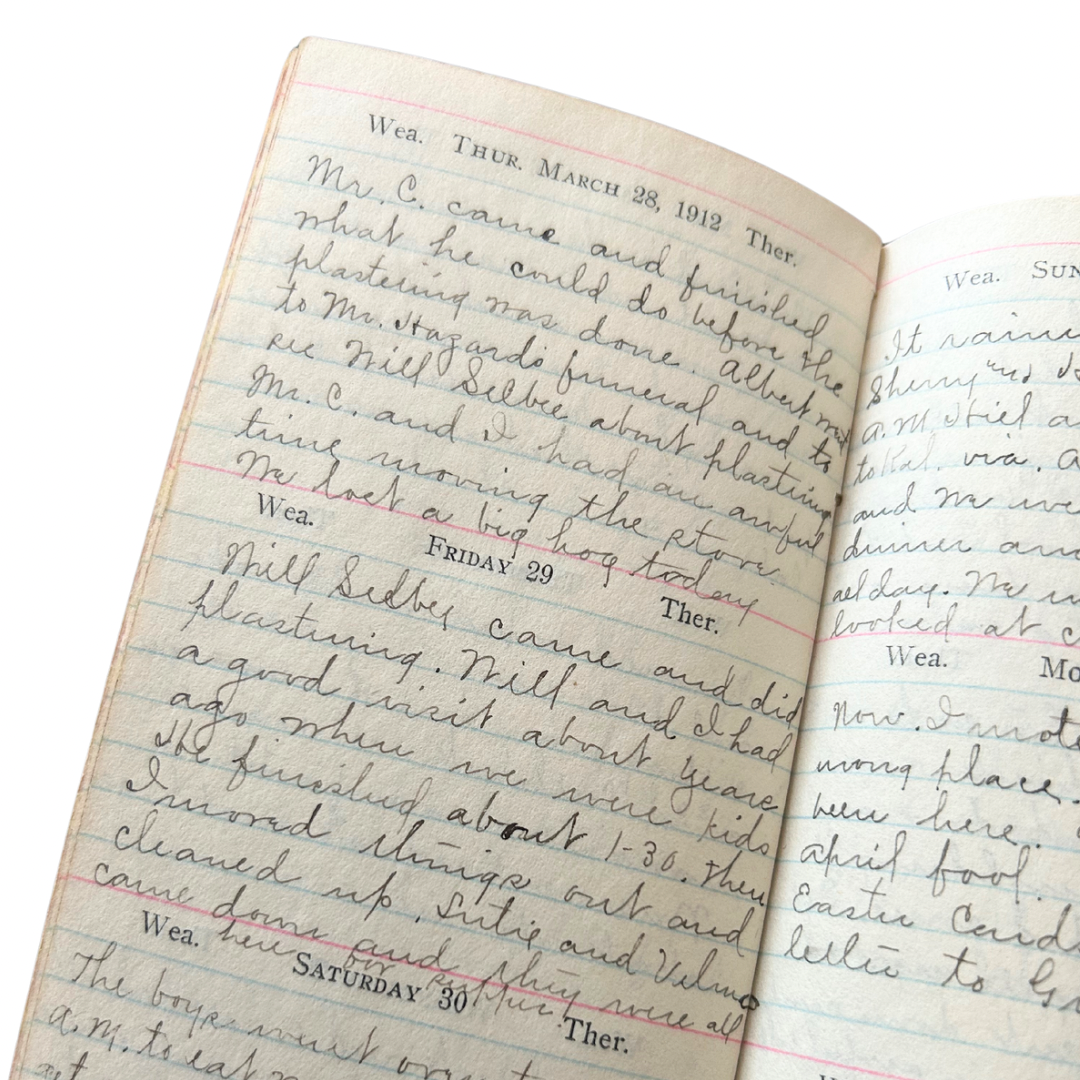 Wea. THUR. MARCH 28, 1912 Ther.
Mr. C. came and finished
what he could do before the
plastering was done. Albert went
to Mr. Hazards funeral and to
see Will Selbee about plastering
Mr. C. and I had an awful
time moving the stove.
We lost a big hog today
Wea. FRIDAY 29 Ther.
Will Selbey came and did
plastering. Will and I had
a good visit about years
ago when we were kids
He finished about 1-30. then
I moved things out and
cleaned up. Sutie and Velma
came down and they were all
here for supper
Wea. SATURDAY 30 Ther.
The boys went over to
a.m. to eat
Wea. SUN
It raine
Sherry and
a.m.
to Kal. via. A
and We we
dinner and
all day. We w
looked at c
Wea. Mo
Now. I wrote
wrong place.
been here.
april fool.
Easter Cards
letter to Gr